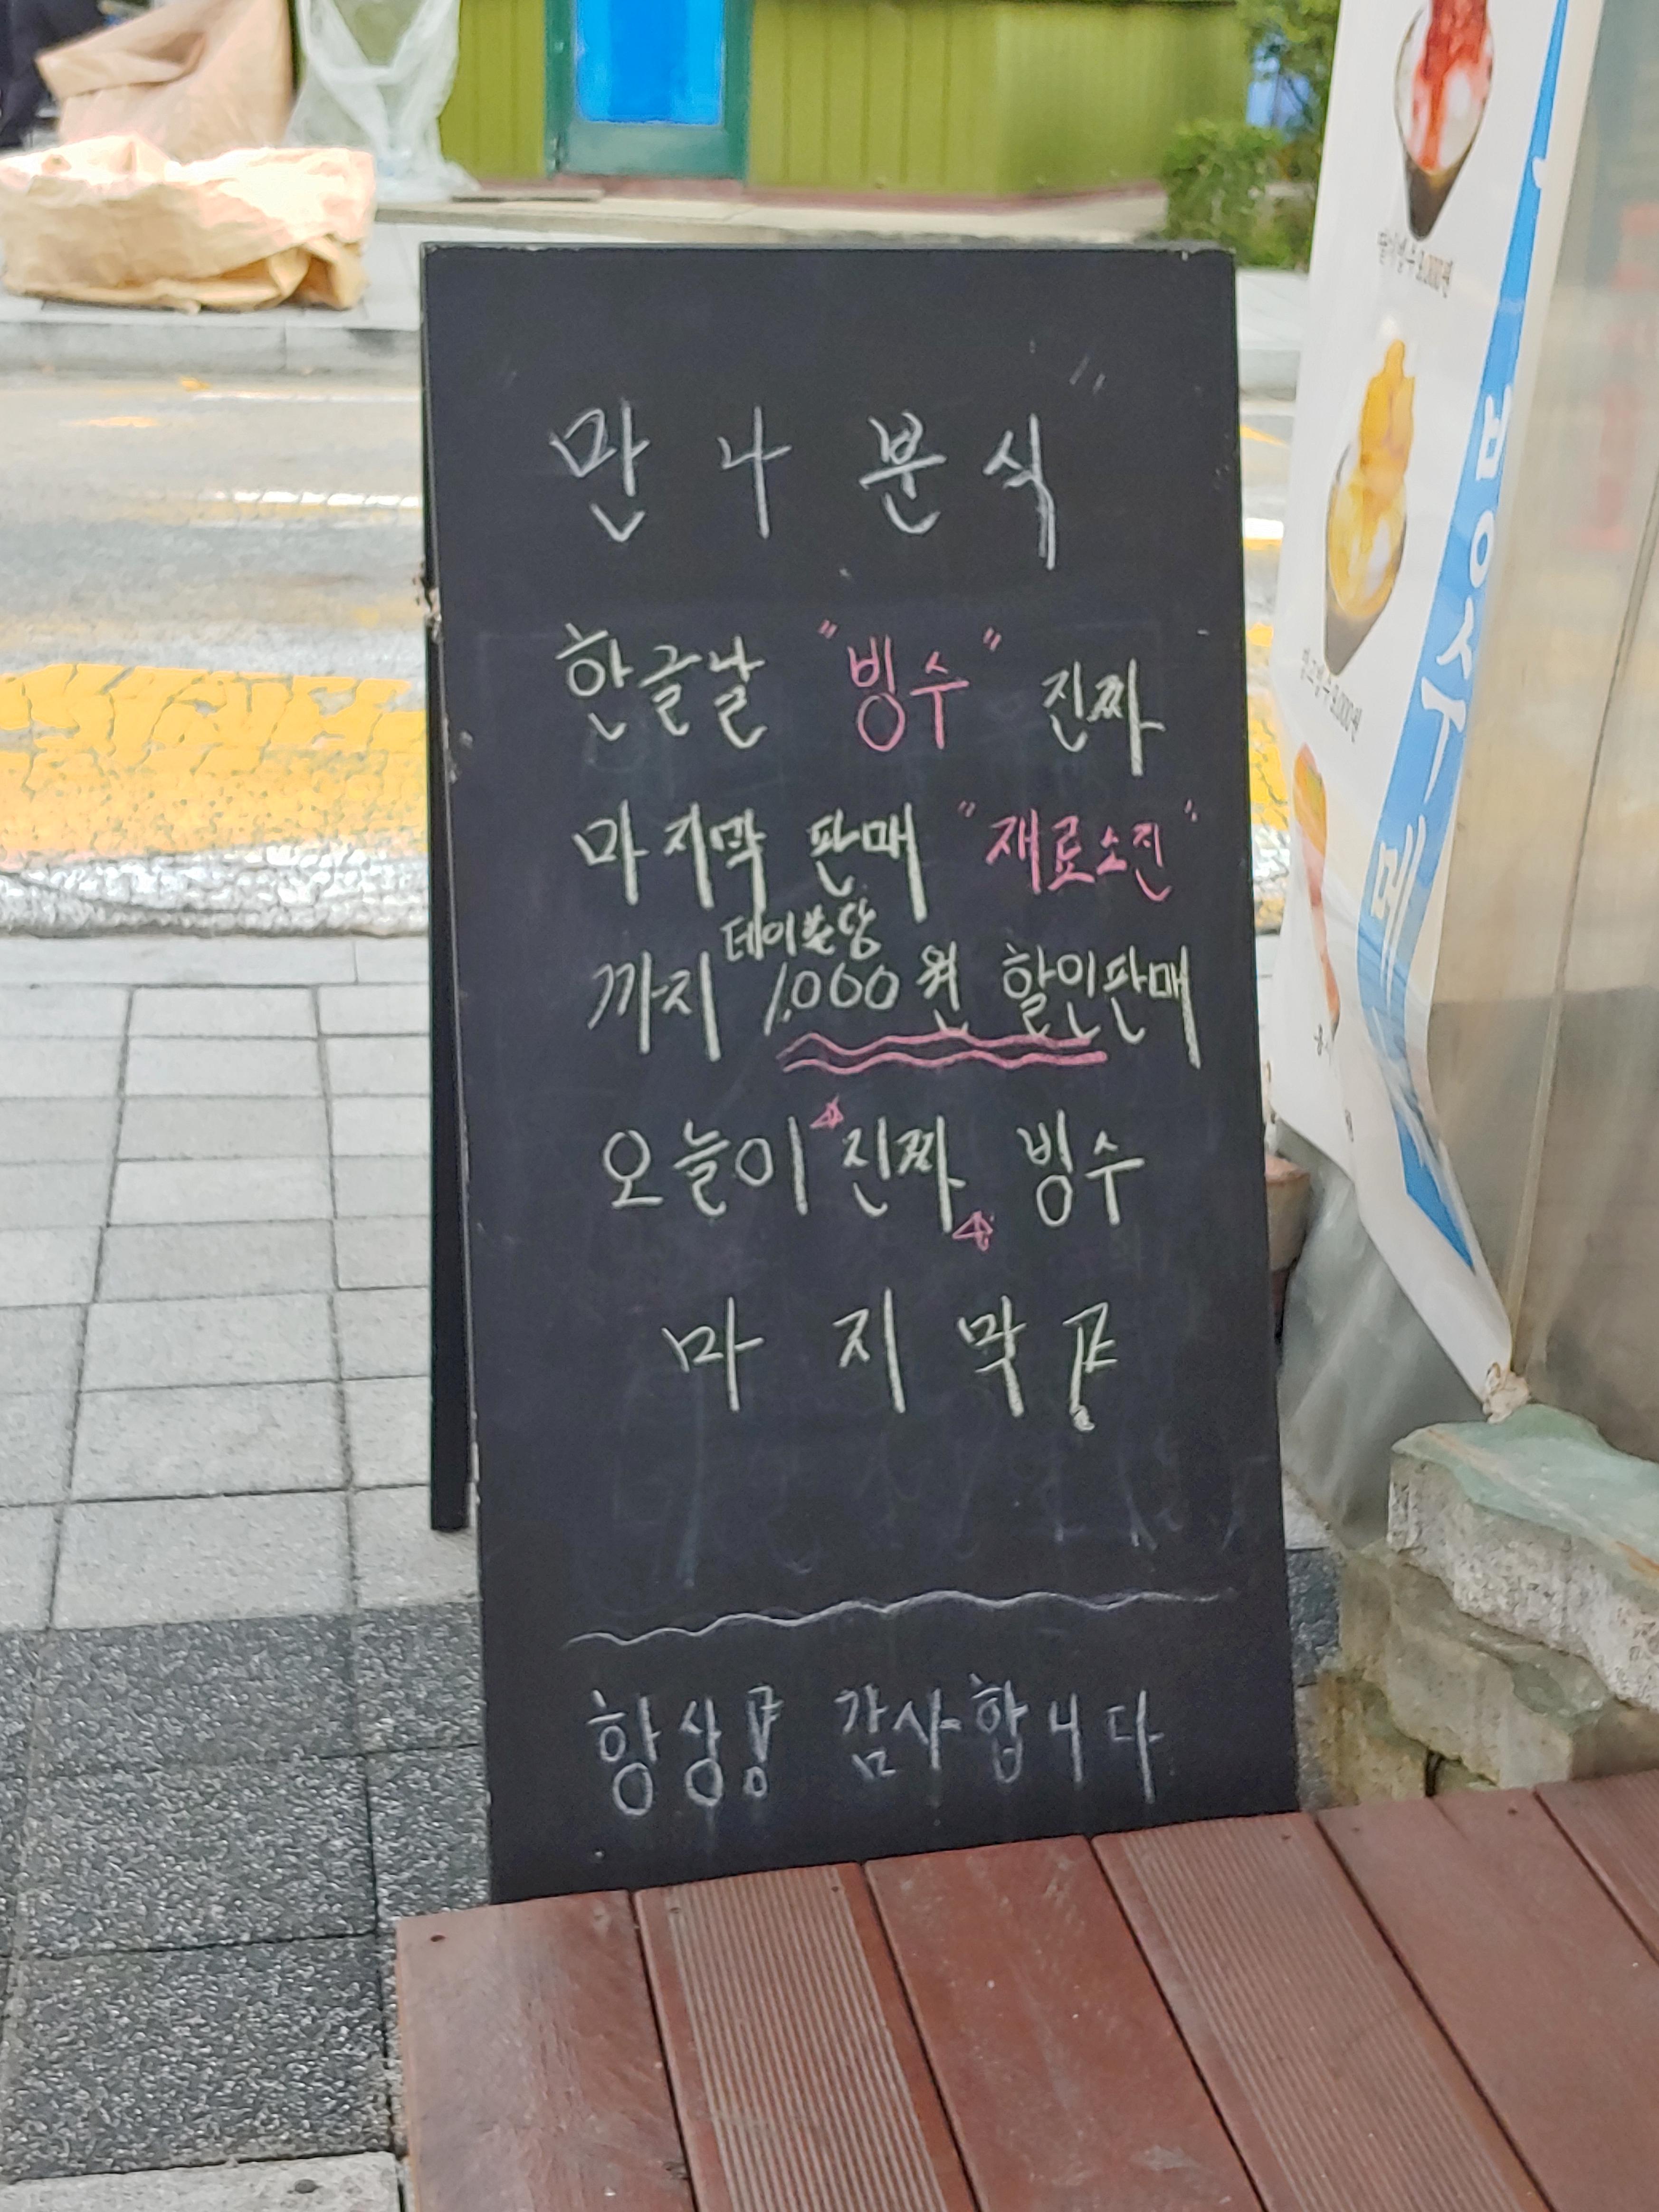 만나분식
한글날 "빙수" 진짜
마지막 판매 "재료소진"
테이블당
까지 1,000원 할인판매
오늘이 진짜 빙수
마지막
항상 감사합니다
빙수메
9,000원
9,000원